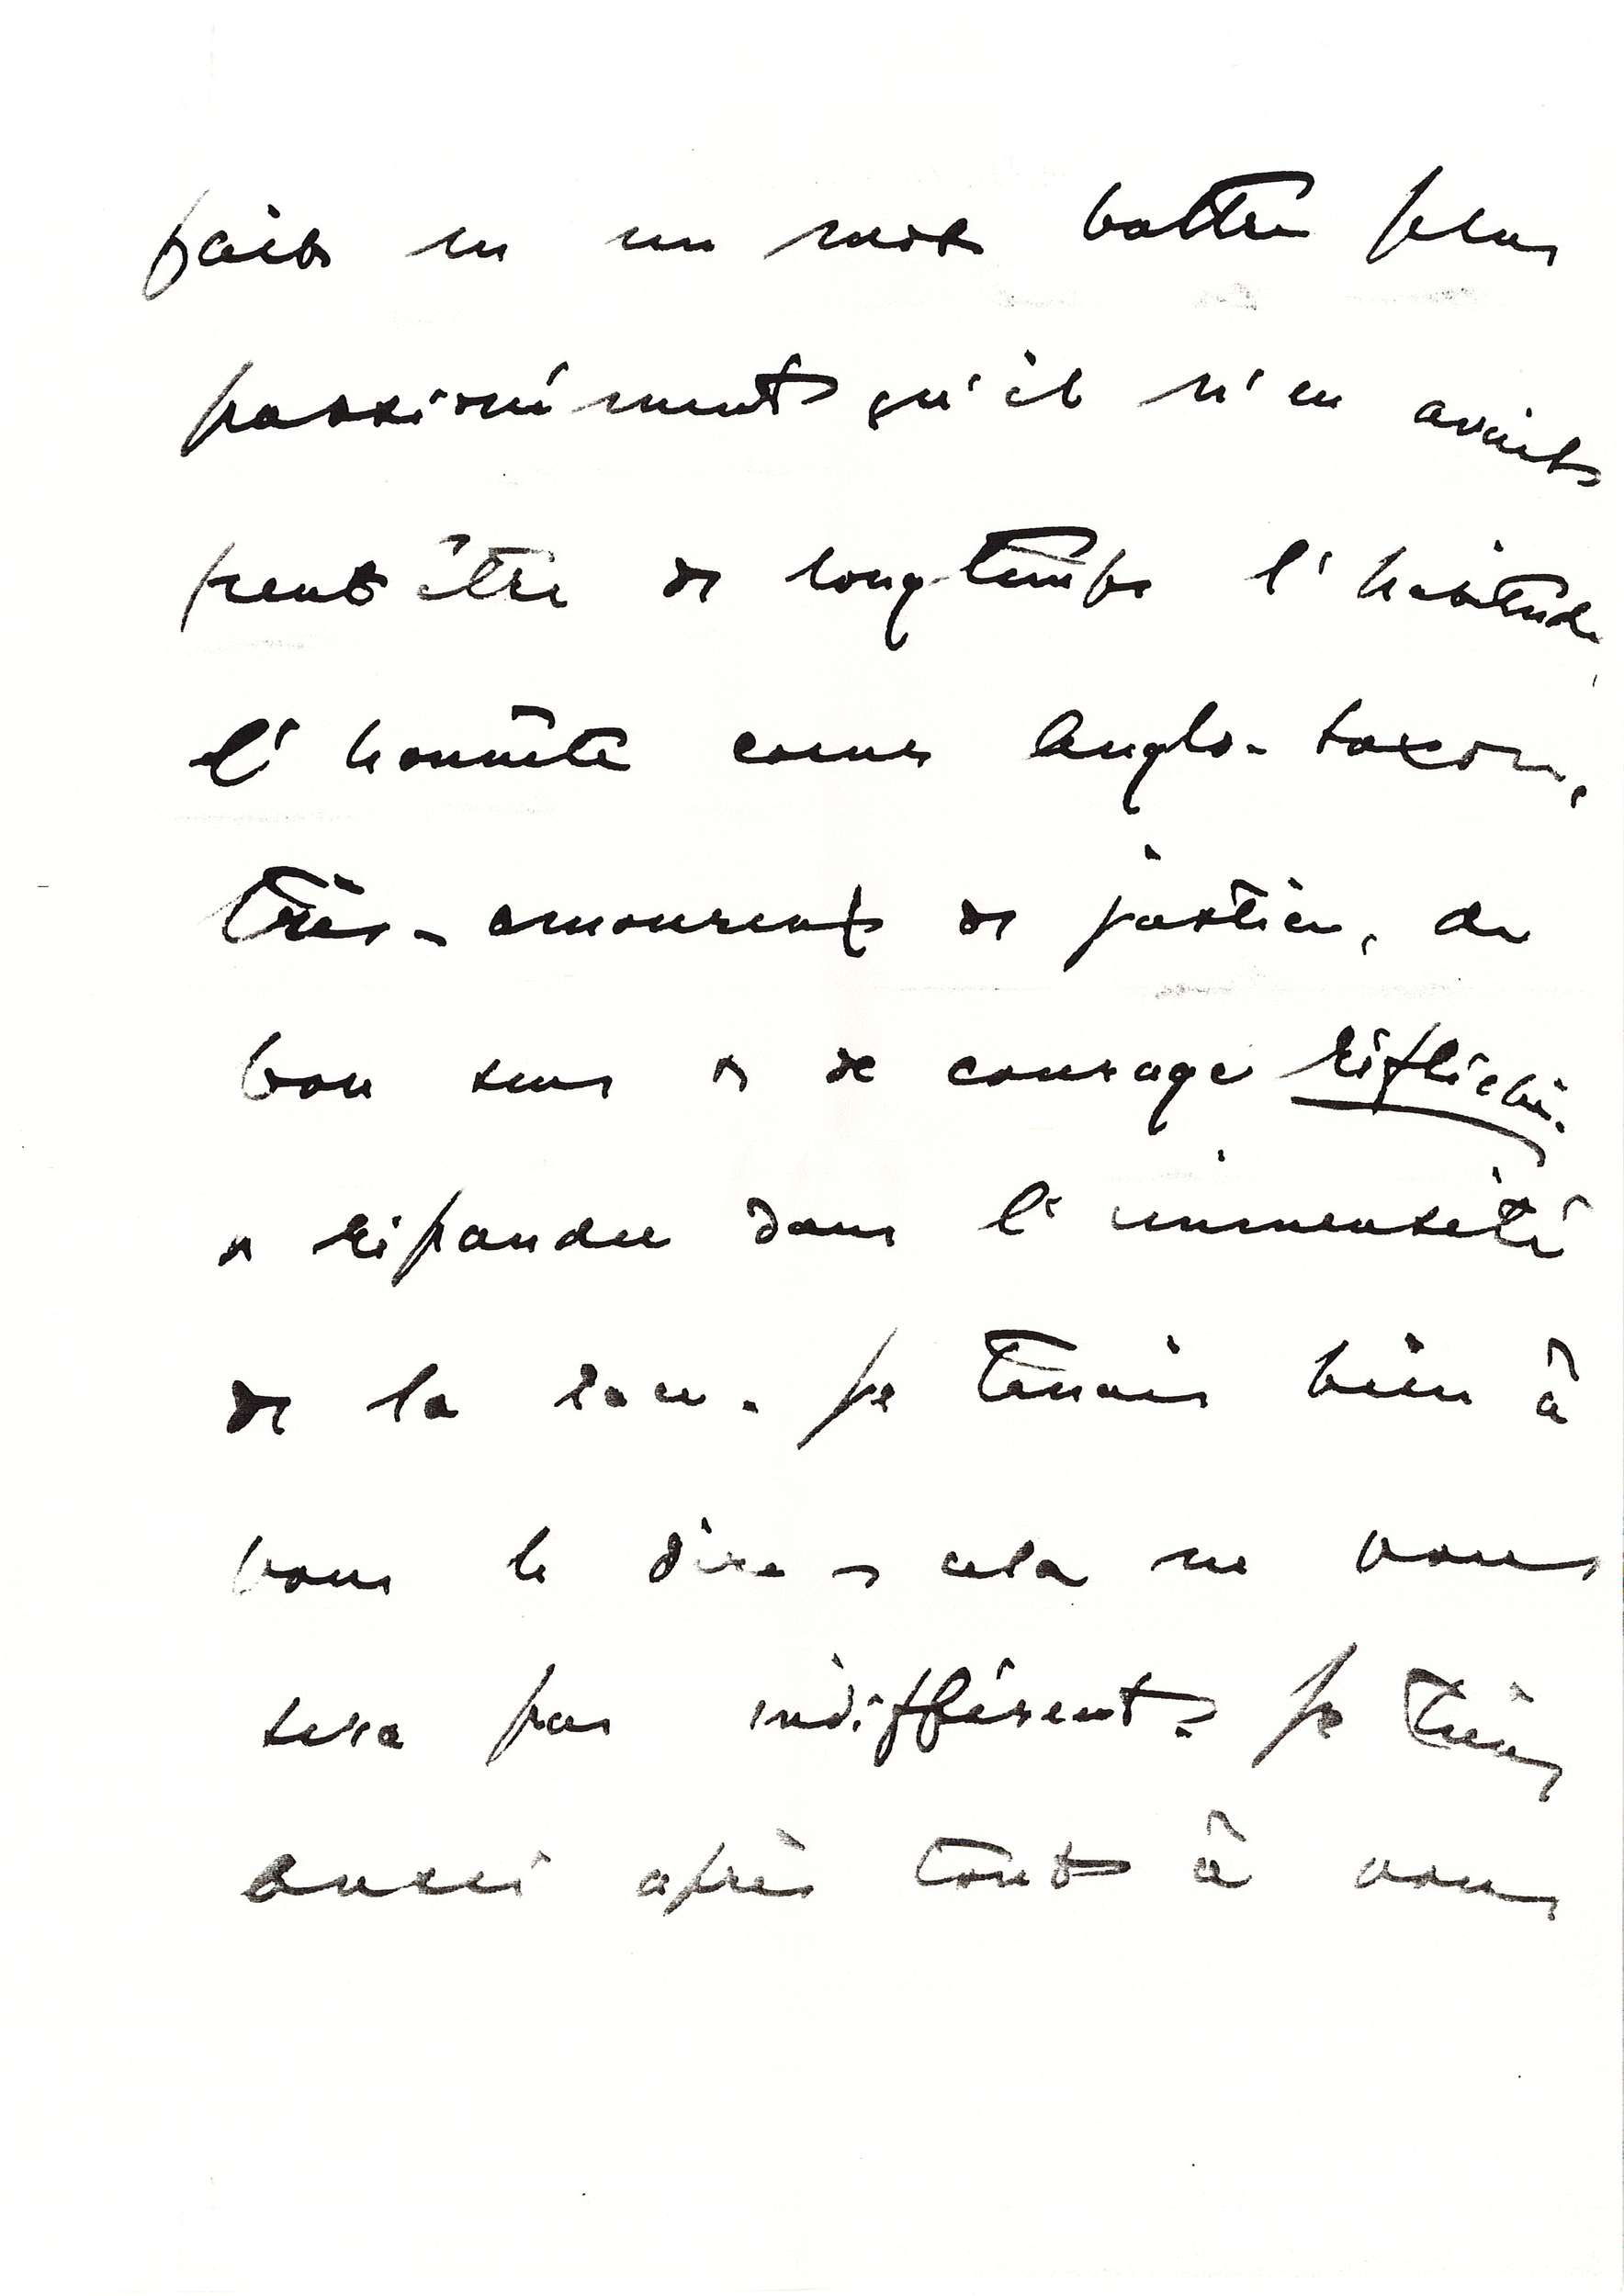 fait en un mot battre plus
passionément qu'il n'en avait
peut être de longtemps l'habitude,
l'honnête coeur anglo-saxon,
très-amoureux de justice, de
bon sens et de courage réfléchi.
et répandu dans l'immensité
de la race. Je tenais bien à
vous le dire et cela ne vous
sera pas indifférent. Je tiens
aussi après tout à vous